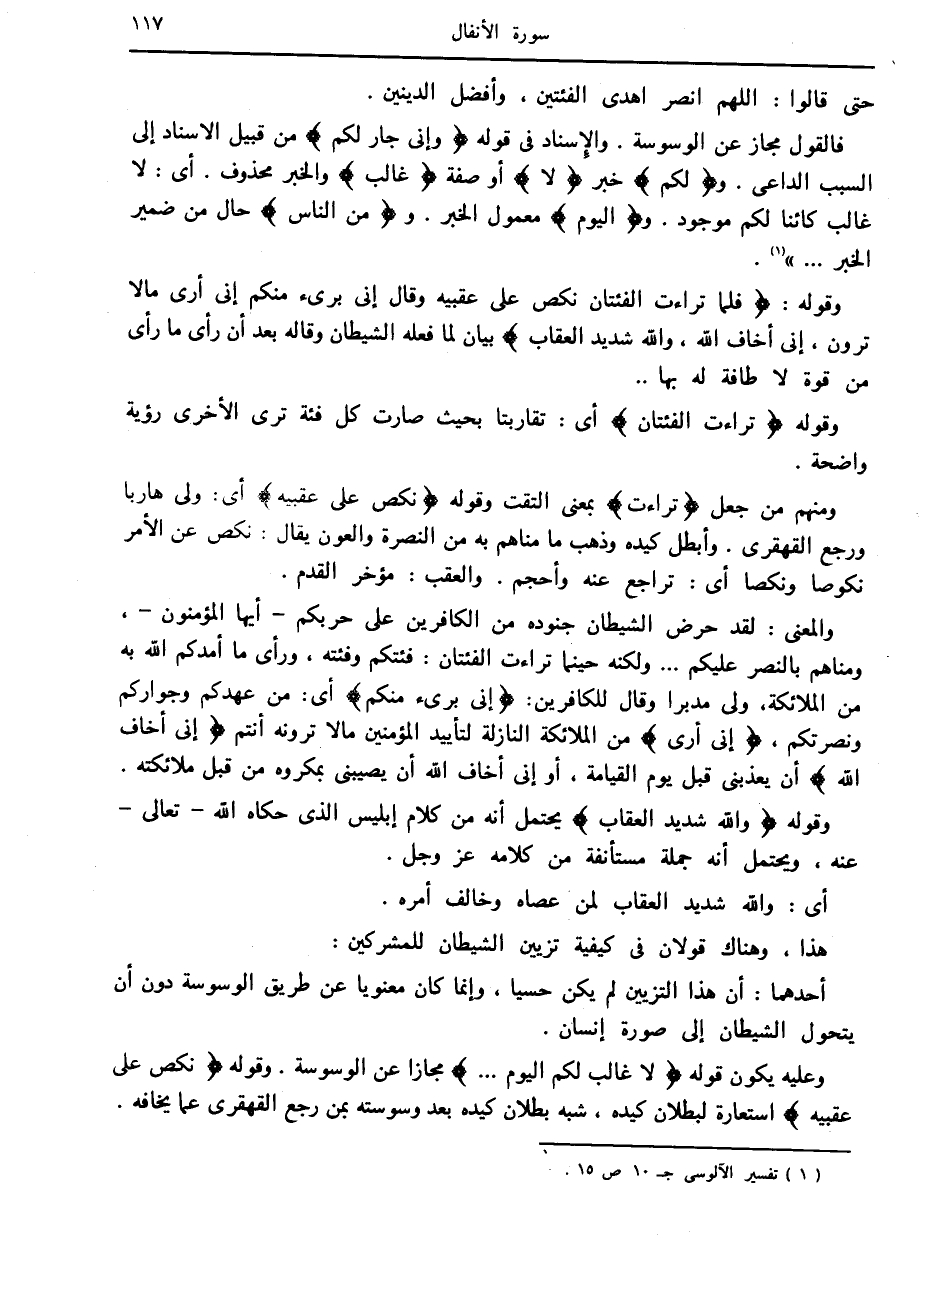 سورة الأنفال ١١٧
حتى قالوا : اللهم انصر اهدى الفئتين ، وأفضل الدينين .
فالقول مجاز عن الوسوسة . والإسناد فى قوله ﴿ وإنى جار لكم ﴾ من قبيل الاسناد إلى
السبب الداعى . و﴿ لكم ﴾ خبر ﴿ لا ﴾ أو صفة ﴿ غالب ﴾ والخبر محذوف . أى : لا
غالب كائنا لكم موجود . و﴿ اليوم ﴾ معمول الخبر . و ﴿ من الناس ﴾ حال من ضمير
الخبر ... »(١) .
وقوله : ﴿ فلما تراءت الفئتان نكص على عقبيه وقال إنى برىء منكم إنى أرى مالا
ترون ، إنى أخاف الله ، والله شديد العقاب ﴾ بيان لما فعله الشيطان وقاله بعد أن رأى ما رأى
من قوة لا طافة له بها ..
وقوله ﴿ تراءت الفئتان ﴾ أى : تقاربتا بحيث صارت كل فئة ترى الأخرى رؤية
واضحة .
ومنهم من جعل ﴿تراءت﴾ بمعنى التقت وقوله ﴿نكص على عقبيه﴾ أى: ولى هاربا
ورجع القهقرى . وأبطل كيده وذهب ما مناهم به من النصرة والعون يقال : نكص عن الأمر
نكوصا ونكصا أى : تراجع عنه وأحجم . والعقب : مؤخر القدم .
والمعنى : لقد حرض الشيطان جنوده من الكافرين على حربكم – أيها المؤمنون – ،
ومناهم بالنصر عليكم ... ولكنه حينما تراءت الفئتان : فئتكم وفئته ، ورأى ما أمدكم الله به
من الملائكة، ولى مدبرا وقال للكافرين: ﴿إنى برىء منكم﴾ أى: من عهدكم وجواركم
ونصرتكم ، ﴿ إنى أرى ﴾ من الملائكة النازلة لتأييد المؤمنين مالا ترونه أنتم ﴿ إنى أخاف
الله ﴾ أن يعذبنى قبل يوم القيامة ، أو إنى أخاف الله أن يصيبنى بمكروه من قبل ملائكته .
وقوله ﴿ والله شديد العقاب ﴾ يحتمل أنه من كلام إبليس الذى حكاه الله – تعالى –
عنه ، ويحتمل أنه جملة مستأنفة من كلامه عز وجل .
أى : والله شديد العقاب لمن عصاه وخالف أمره .
هذا ، وهناك قولان فى كيفية تزيين الشيطان للمشركين :
أحدهما : أن هذا التزيين لم يكن حسيا ، وإنما كان معنويا عن طريق الوسوسة دون أن
يتحول الشيطان إلى صورة إنسان .
وعليه يكون قوله ﴿ لا غالب لكم اليوم ... ﴾ مجازا عن الوسوسة . وقوله ﴿ نكص على
عقبيه ﴾ استعارة لبطلان كيده ، شبه بطلان كيده بعد وسوسته بمن رجع القهقرى عما يخافه .
( ١ ) تفسير الآلوسى جـ ١٠ ص ١٥ .